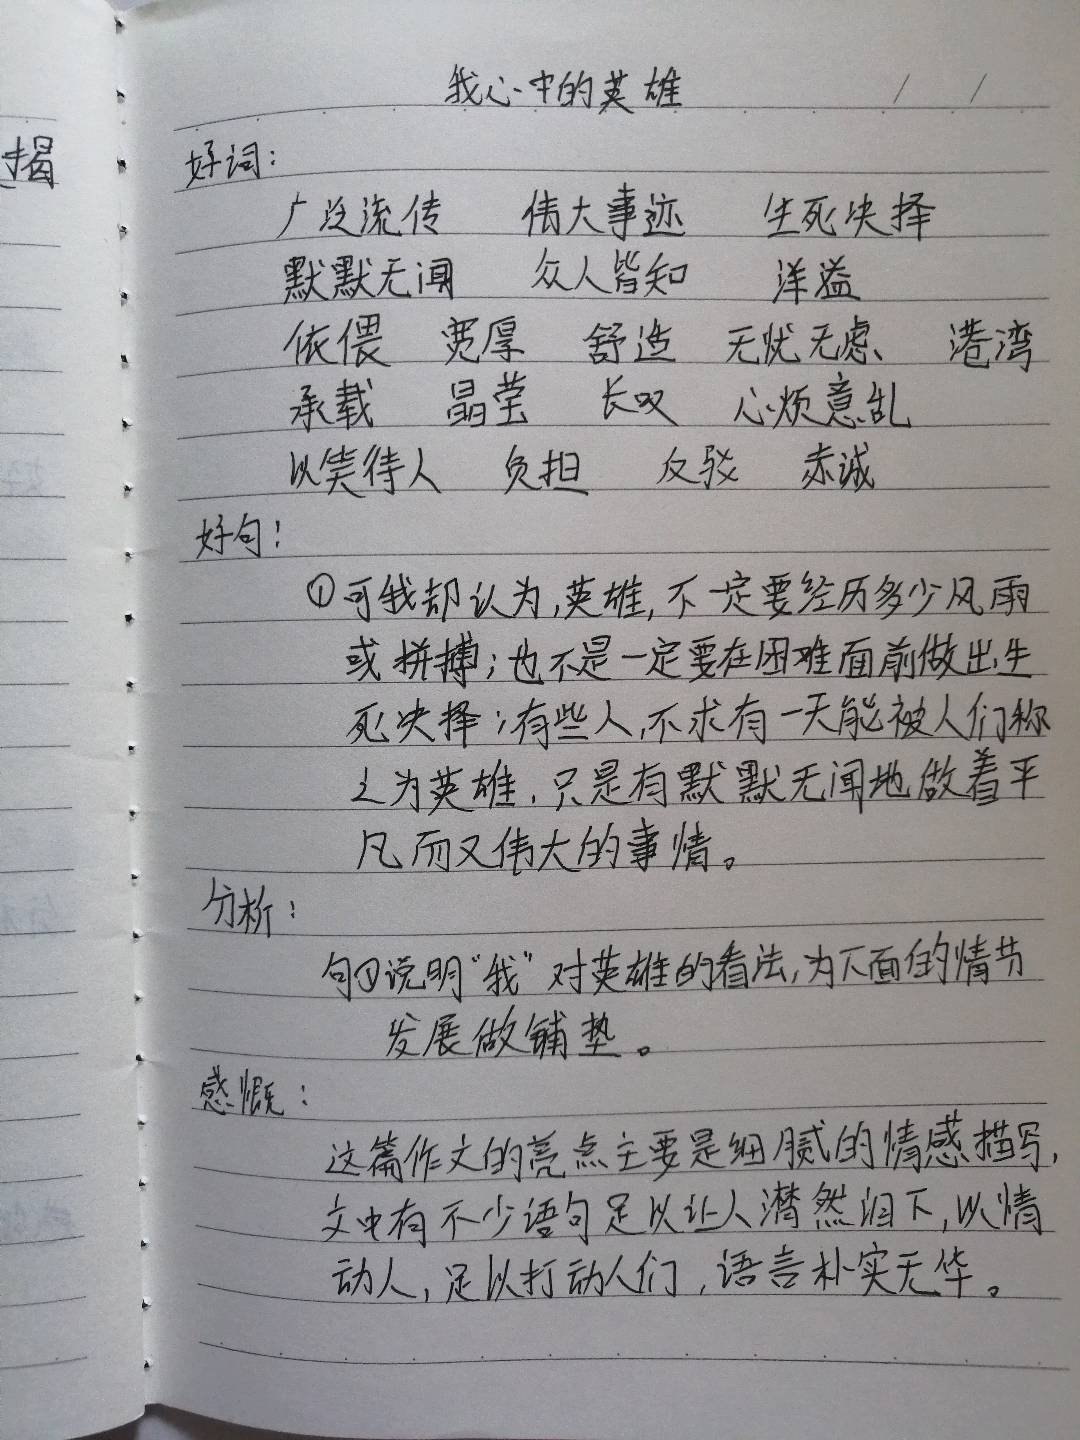 揭
我心中的英雄
好词：
广泛流传 伟大事迹 生死决择
默默无闻 众人皆知 洋溢
依偎 宽厚 舒适 无忧无虑、 港湾
承载 晶莹 长叹 心烦意乱
以笑待人 负担 反驳 赤诚
好句！
①可我却认为,英雄,不一定要经历多少风雨
或拼搏；也不是一定要在困难面前做出生
死决择；有些人,不求有一天能被人们称
之为英雄，只是有默默无闻地做着平
凡而又伟大的事情。
分析：
句①说明“我”对英雄的看法,为下面的情节
发展做铺垫。
感慨：
这篇作文的亮点主要是细腻的情感描写,
文中有不少语句足以让人潸然泪下,以情
动人,足以打动人们,语言朴实无华。